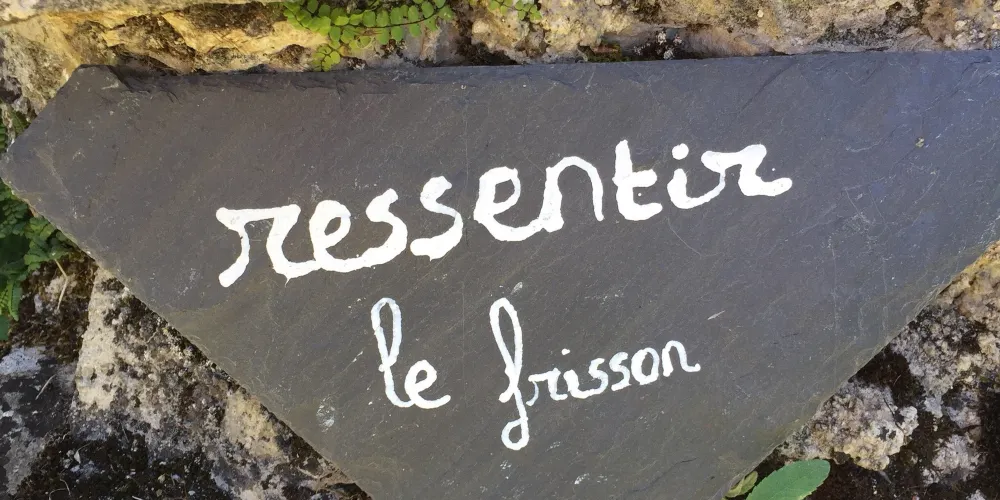 ressentir
le frisson